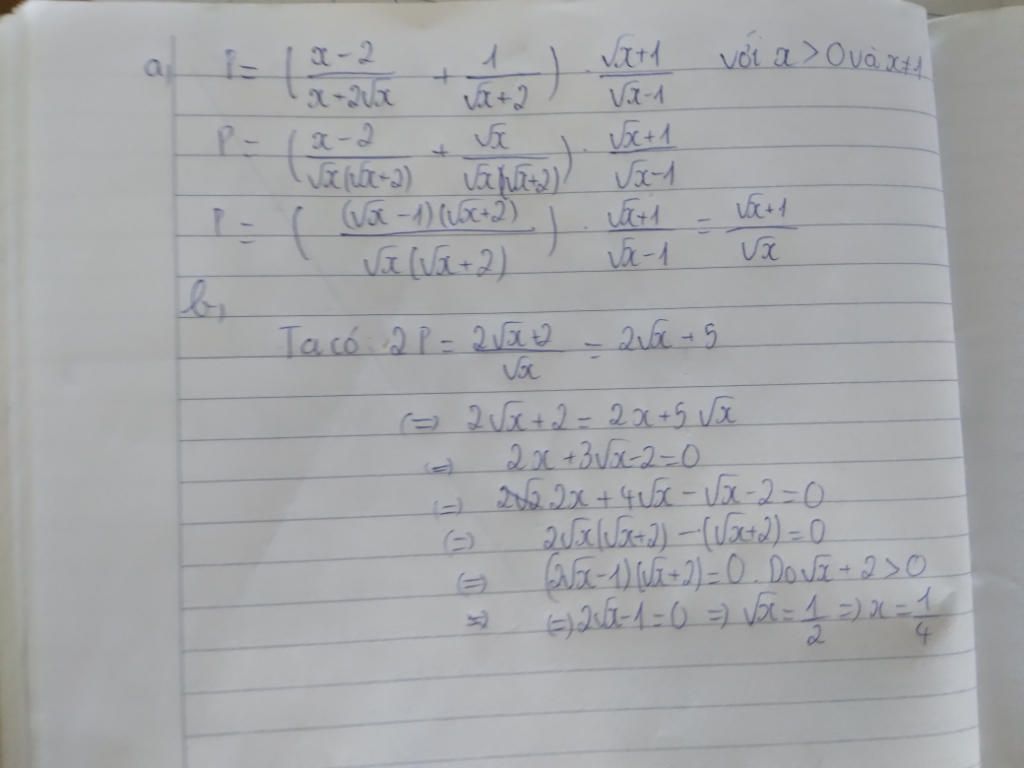 a, P = ( (x-2)/(x+2√x) + 1/(√x+2) ) · (√x+1)/(√x-1) với x > 0 và x ≠ 1
P = ( (x-2)/(√x(√x+2)) + √x/(√x(√x+2)) ) · (√x+1)/(√x-1)
P = ( (√x-1)(√x+2)/(√x(√x+2)) ) · (√x+1)/(√x-1) = (√x+1)/√x
b,
Ta có: 2P = (2√x+2)/√x = 2√x + 5
(=) 2√x + 2 = 2x + 5√x
(=) 2x + 3√x - 2 = 0
(=) 2x + 4√x - √x - 2 = 0
(=) 2√x(√x+2) - (√x+2) = 0
(=) (2√x-1)(√x+2) = 0. Do √x + 2 > 0
=) (=) 2√x-1 = 0 =) √x = 1/2 =) x = 1/4